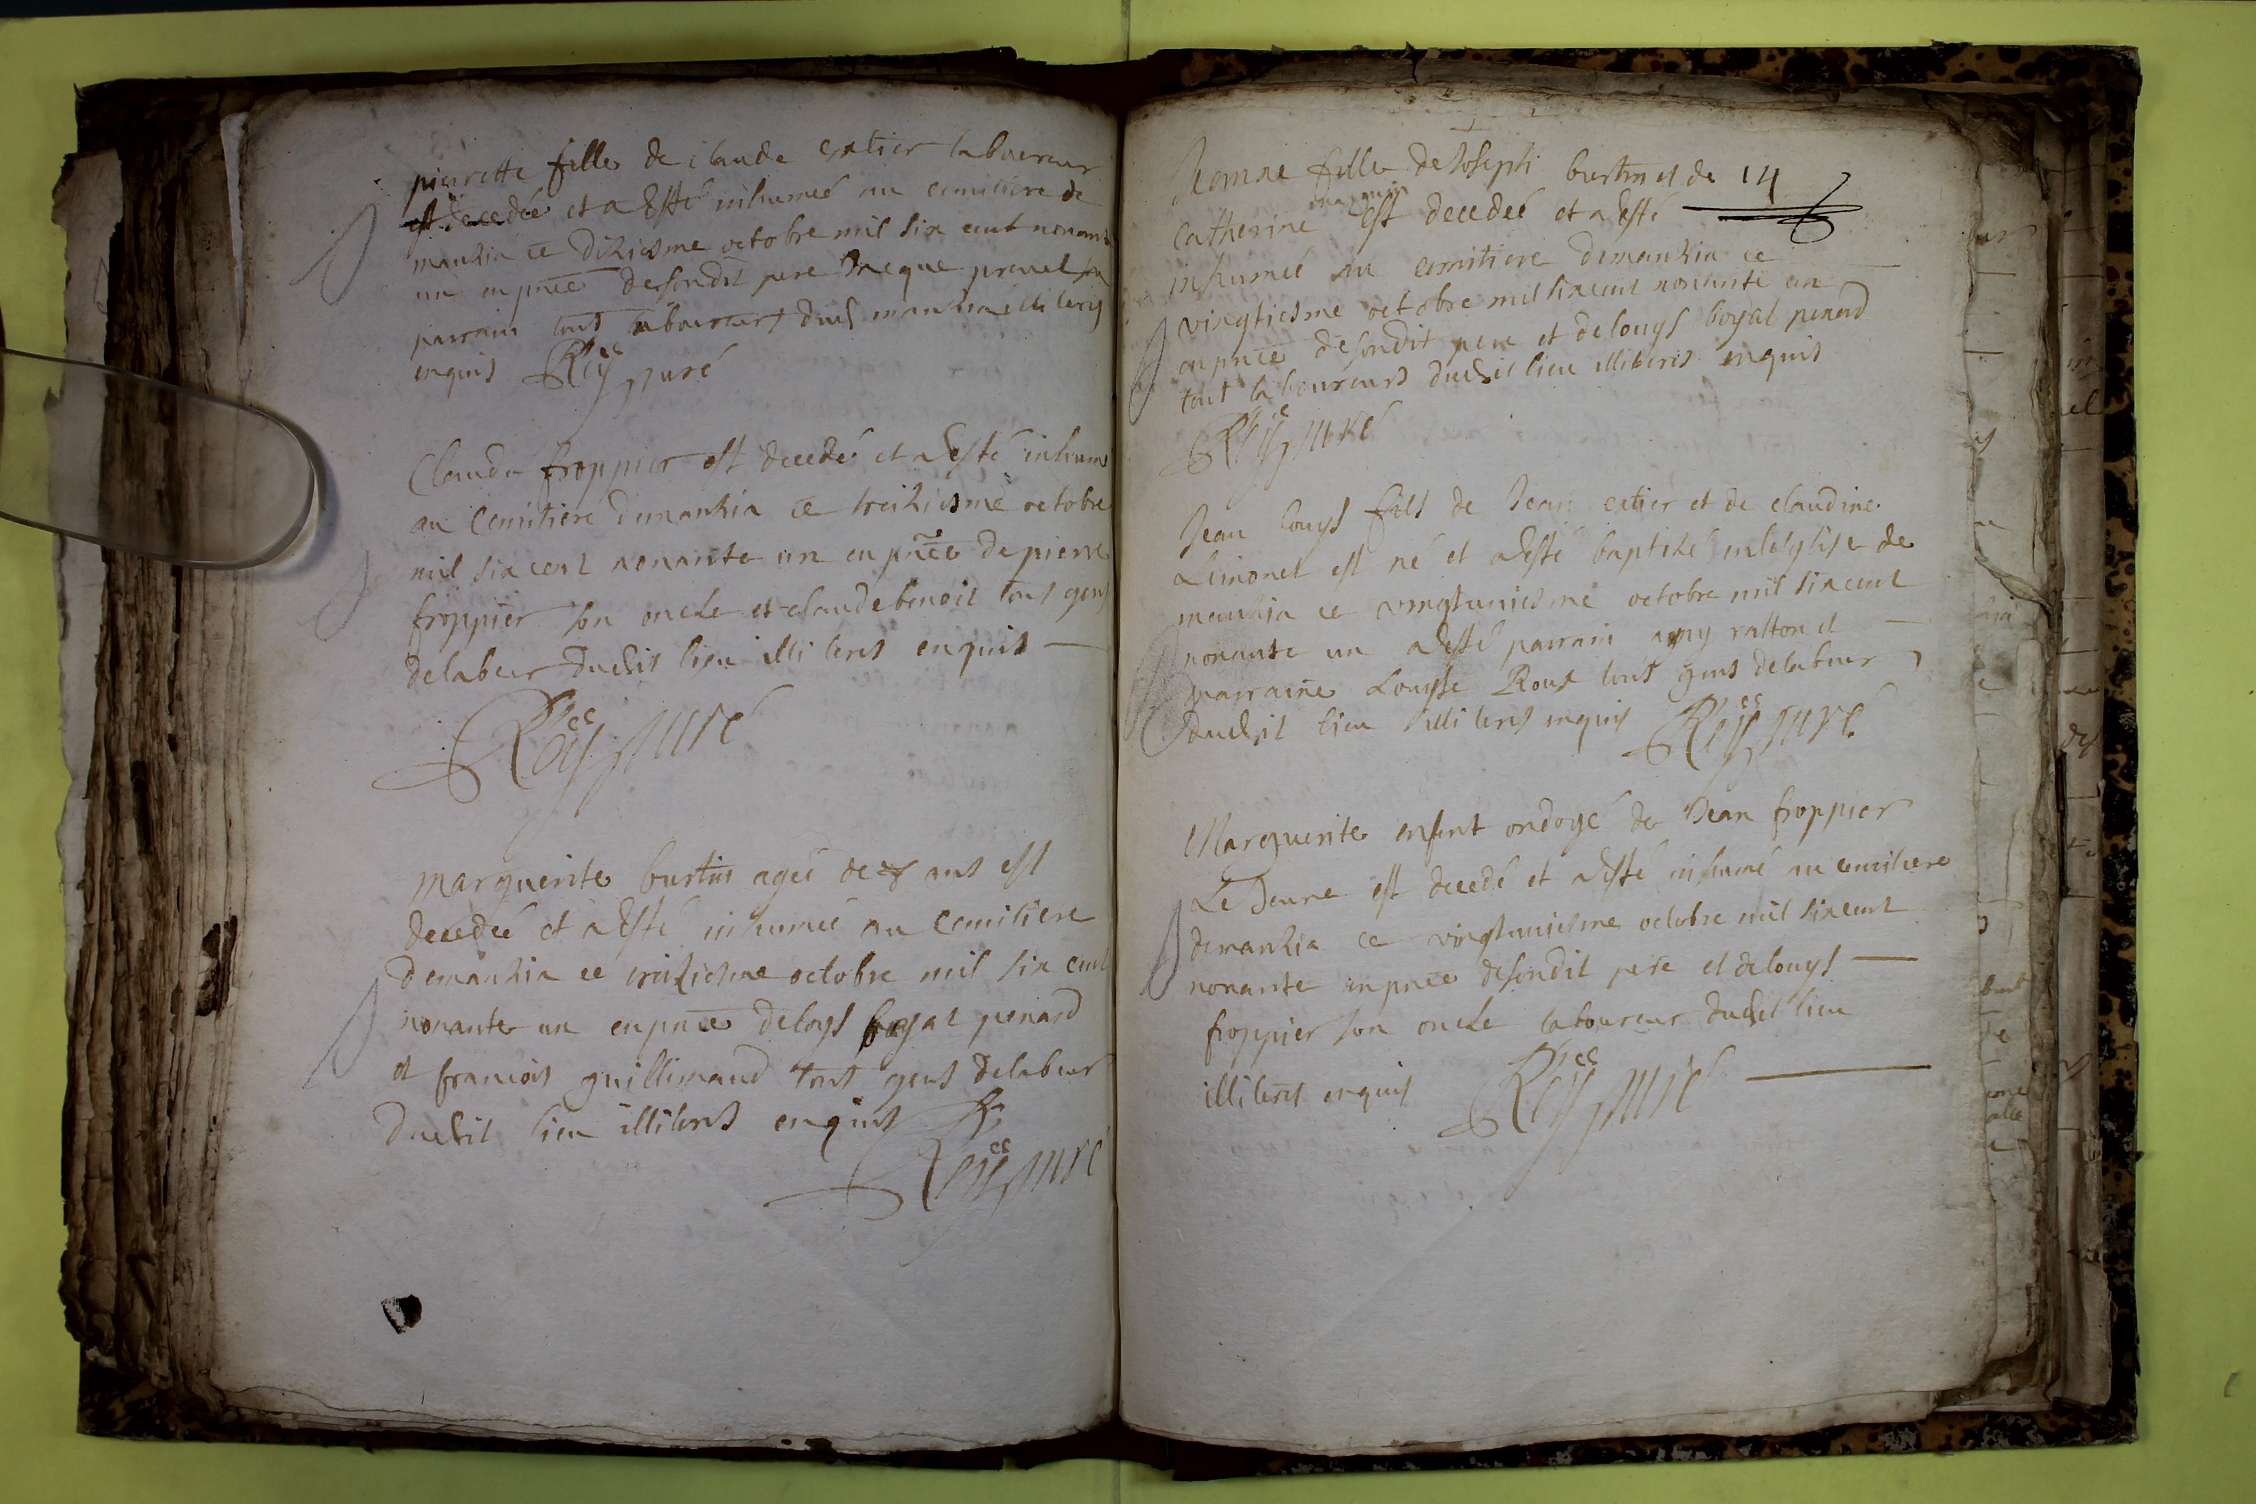 pierette fille de claude extier laboureur
est decedée et a esté inhumeé au cimitiere de
mankia ce dixiesme octobre mil six cent nonante
un en pñce desondit pere Jacque prevel son
parrain tous laboureurs dud mankia illiterés
enquis Rey juré
Claude froppier est decedé et a esté inhumé
au Cemitiere demankia ce treiziesme octobre
mil six cent nonante un en pñce de pierre
froppier son oncle et claude benoit tous gens
delabeur dudit lieu illiterés enquis
Rey juré
marguerite burtin ageé de ans est
decedeé et a esté inhumeé au Cemitiere
demankia ce treiziesme octobre mil six cent
nonante un en pñce deloys boyat penard
et francois guillimaud tous gens delabeur
dudit lieu illiterés enquis
Rey juré
Jeanne fille de Joseph burtin et de 14
Catherine est decedeé et a esté
inhumeé au cemitiere demankia ce
vingtiesme octobre mil six cent nonante un
en pñce desondit pere et delouys boyat penard
tous laboureurs dudit lieu illiterés enquis
Rey juré
Jean louys fils de Jean extier et de claudine
Limonet est né et a esté baptizé en leglise de
mankia ce vingtuniesme octobre mil six cent
nonante un a esté parrain amy ratton et
marraine Louyse Roux tous gens delabeur
dudit lieu illiterés enquis Rey juré
Marguerite enfent ondoyé de Jean froppier
Le Jeune est decedé et a esté inhumé au cemitiere
demankia ce vingtuniesme octobre mil six cent
nonante en pñce desondit pere et delouys
froppier son oncle laboureur dudit lieu
illiterés enquis Rey juré